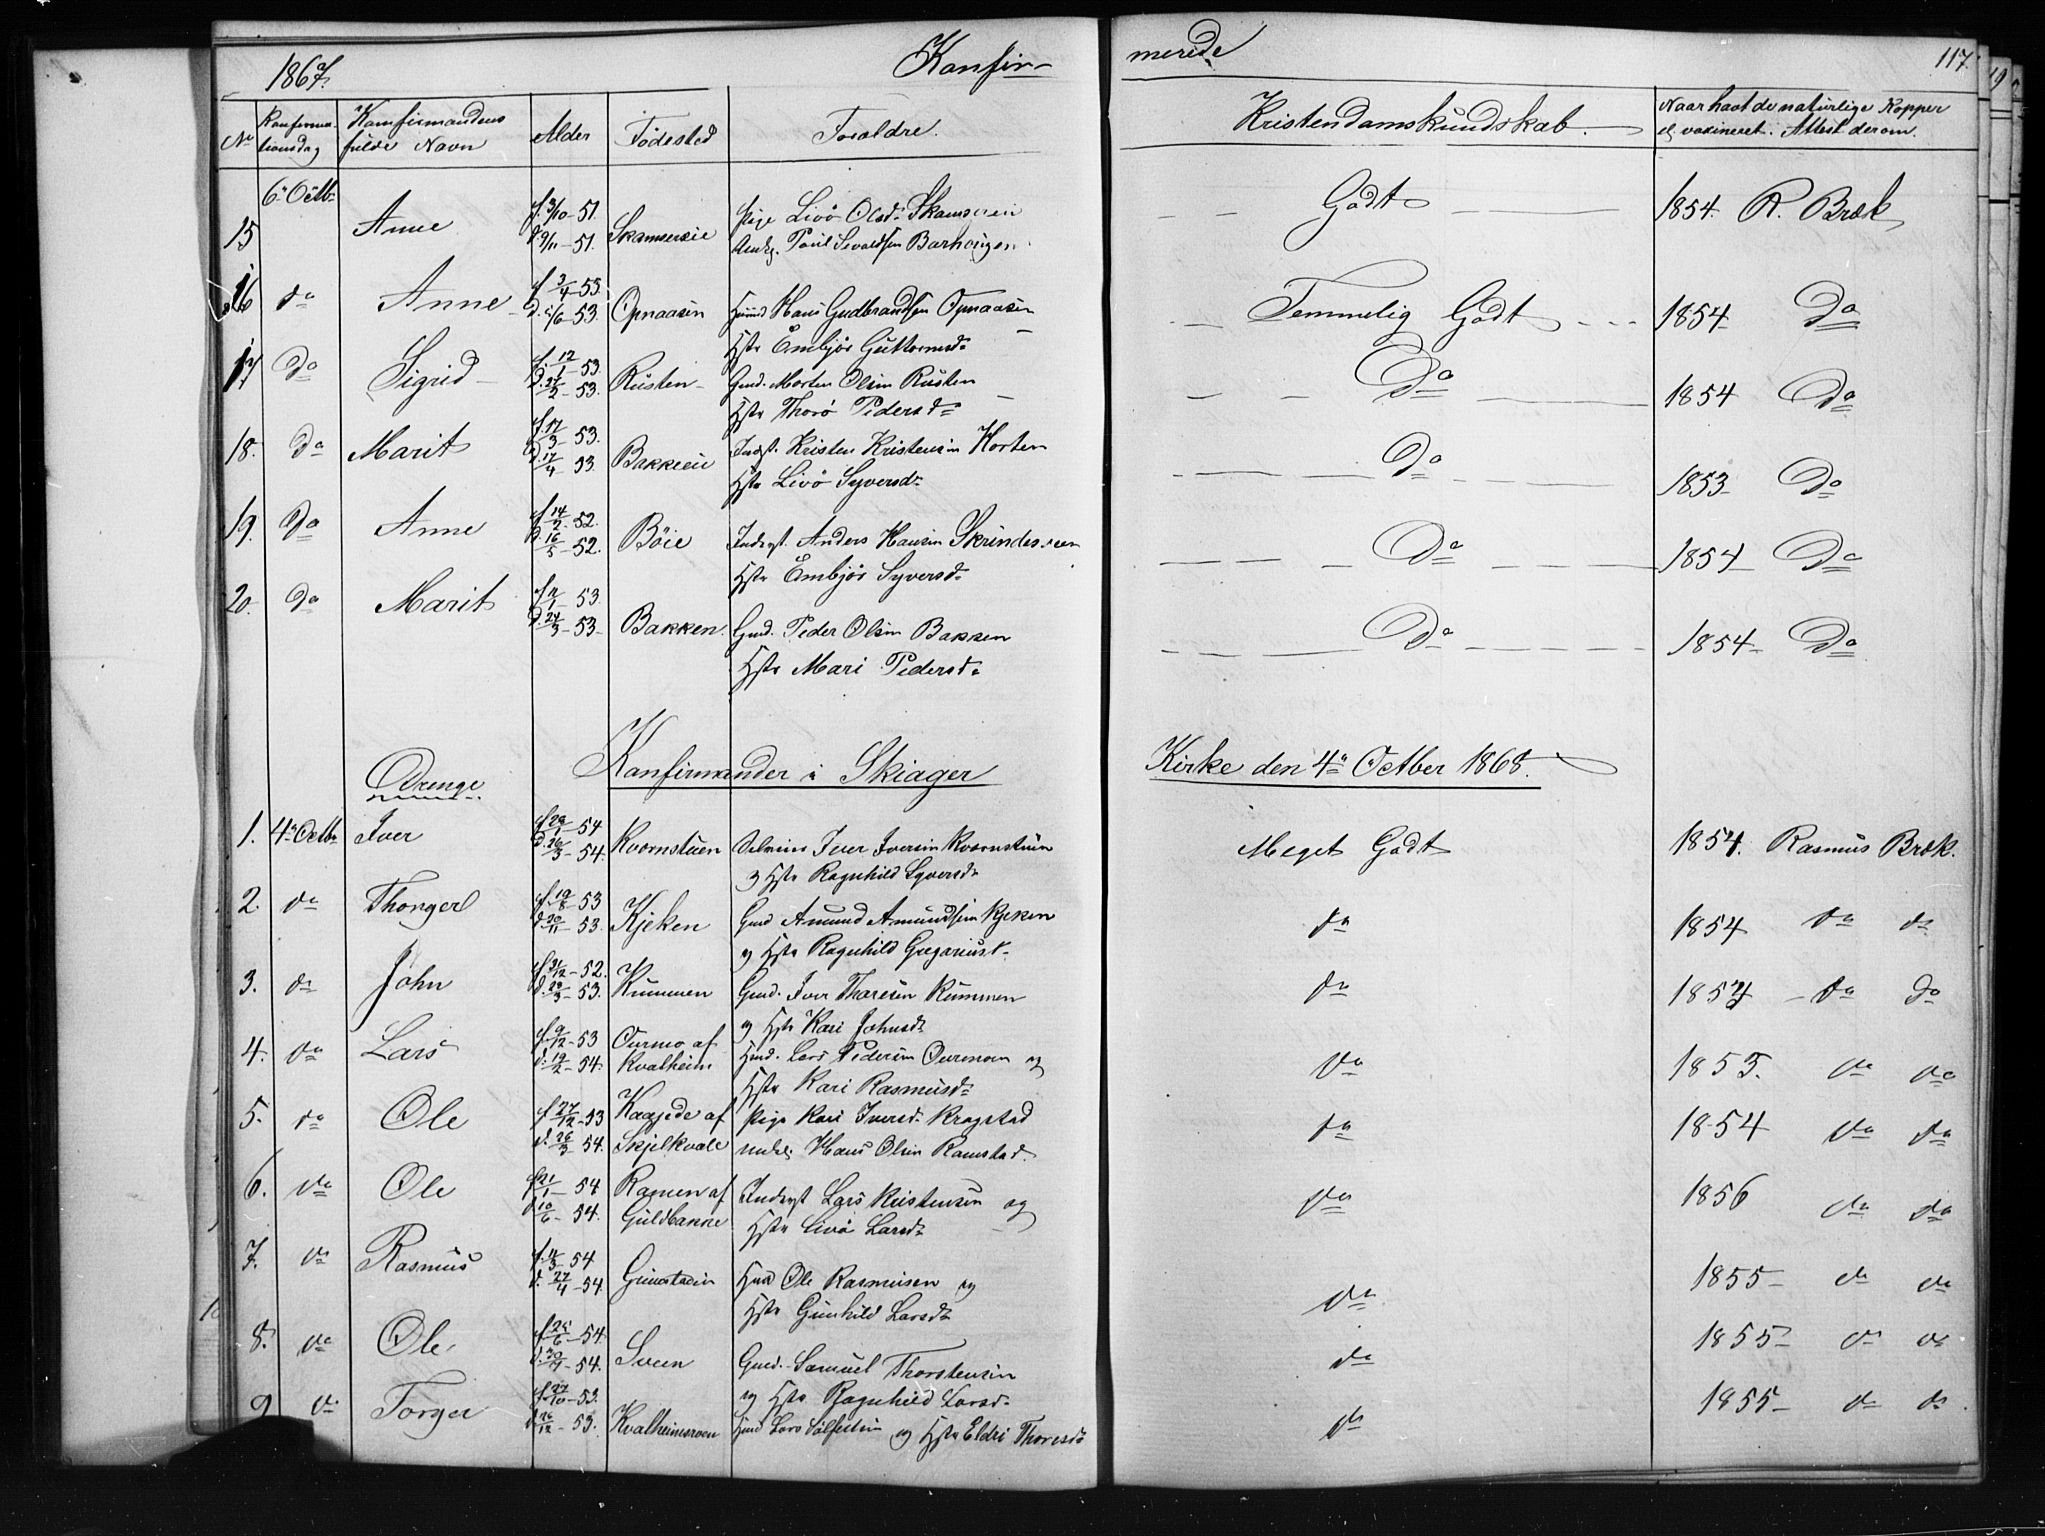 1867.
Konfir-
merede
117.
No
Konfirma-
tionsdag
Konfirmandens
fulde Navn
Alder
Fødested
Foraldre.
Kristendomskundskab.
Naar havt de naturlige Kopper
el. vakineret. Attest derom.
15 6te Octb. Anne f. 3/10-51. d. 9/11-51. Skamsereie
Pige Livø Olsd. Skamsereie
Poul Sivaldsen Barhougen
Godt 1854. R. Bræk
16 do Anne f. 3/4-53. 53. Opnaasen
Hans Gudbrandsen Opnaasen
Hstr Embjør Guttormsd.
Temmelig Godt 1854 Do
17 Do Sigrid f. 12/1-53. d. 27/2-53. Rusten
Gmd. Morten Olsen Rusten
Hstr Thorø Pedersd.
Do 1854 Do
18. Do Marit f. 17/3-53. d. 17/4 53 Bakkeeie
Indst. Kristen Kristensen Korten
Hstr Livø Syversd.
Do 1853 Do
19. Do Anne f. 14/2-52. d. 16/5-52. Bøie
Inderst. Anders Hansen
Hstr Embjør Syversd.
Do 1854 Do
20. Do Marit 53. d. 24/3-53 Bakken.
Gmd. Peder Olsen Bakken
Hstr Mari Pedersd.
Do 1854 Do
Konfirmander i Skiager
Kirke den 4de Octber 1868.
Drenge
1. 4de Octbr Iver f. 29/1-54 d. 26/3-54. Kvornstuen
Iver Iversen Kvornstuen
og Hstr Ragnhild Syversd.
Meget Godt 1854. Rasmus Bræk.
2. do Thorger f. 19/8-53 d. 20/11-53. Kjeken
Gmd Amund Amundsen Kjeken
og Hstr Ragnhild Gregariusd.
do 1854 do do
3. do John f. 31/12-52. d. 29/3-53. Rummen
Gmd. Iver Thoresen Rummen
og Hstr Kari Johnsd.
do do do
4. do Lars f. 9/12-53 d. 19/2-54. Ourmo af
Kvalheim
Hmd. Lars Pedersen Ourmoen og
Hstr Kari Rasmusd.
do 1855. do do
5. do Ole f. 27/12-53 d. 26/3 54. Kaajede af
Skjelkvale
Pige Kari Iversd. Kragstad
Hans Olsen Ramstad.
do 1854 do do
6. do Ole f. 21/1-54 d. 10/6-54. Ramen af
Guldbanne
Inderst Lars Kristensen og
Hstr Livø Larsd.
do 1856 do do
7. do Rasmus 54 d. 27/4-54. Grimstadeie
Hmd Ole Rasmusen og
Hstr Gunhild Larsd.
do 1855 do do
8. do Ole f. 25/6-54. 54. Sveen
Gmd. Samuel Thorstensen
og Hstr Ragnhild Larsd.
do 1855 do do
9 do Torger f. 27/10-53. d. 26/12-53. Kvalheimsroen
Hmd Lars Sølfestsen og Hstr Eldri Thoresd.
do 1855 do do